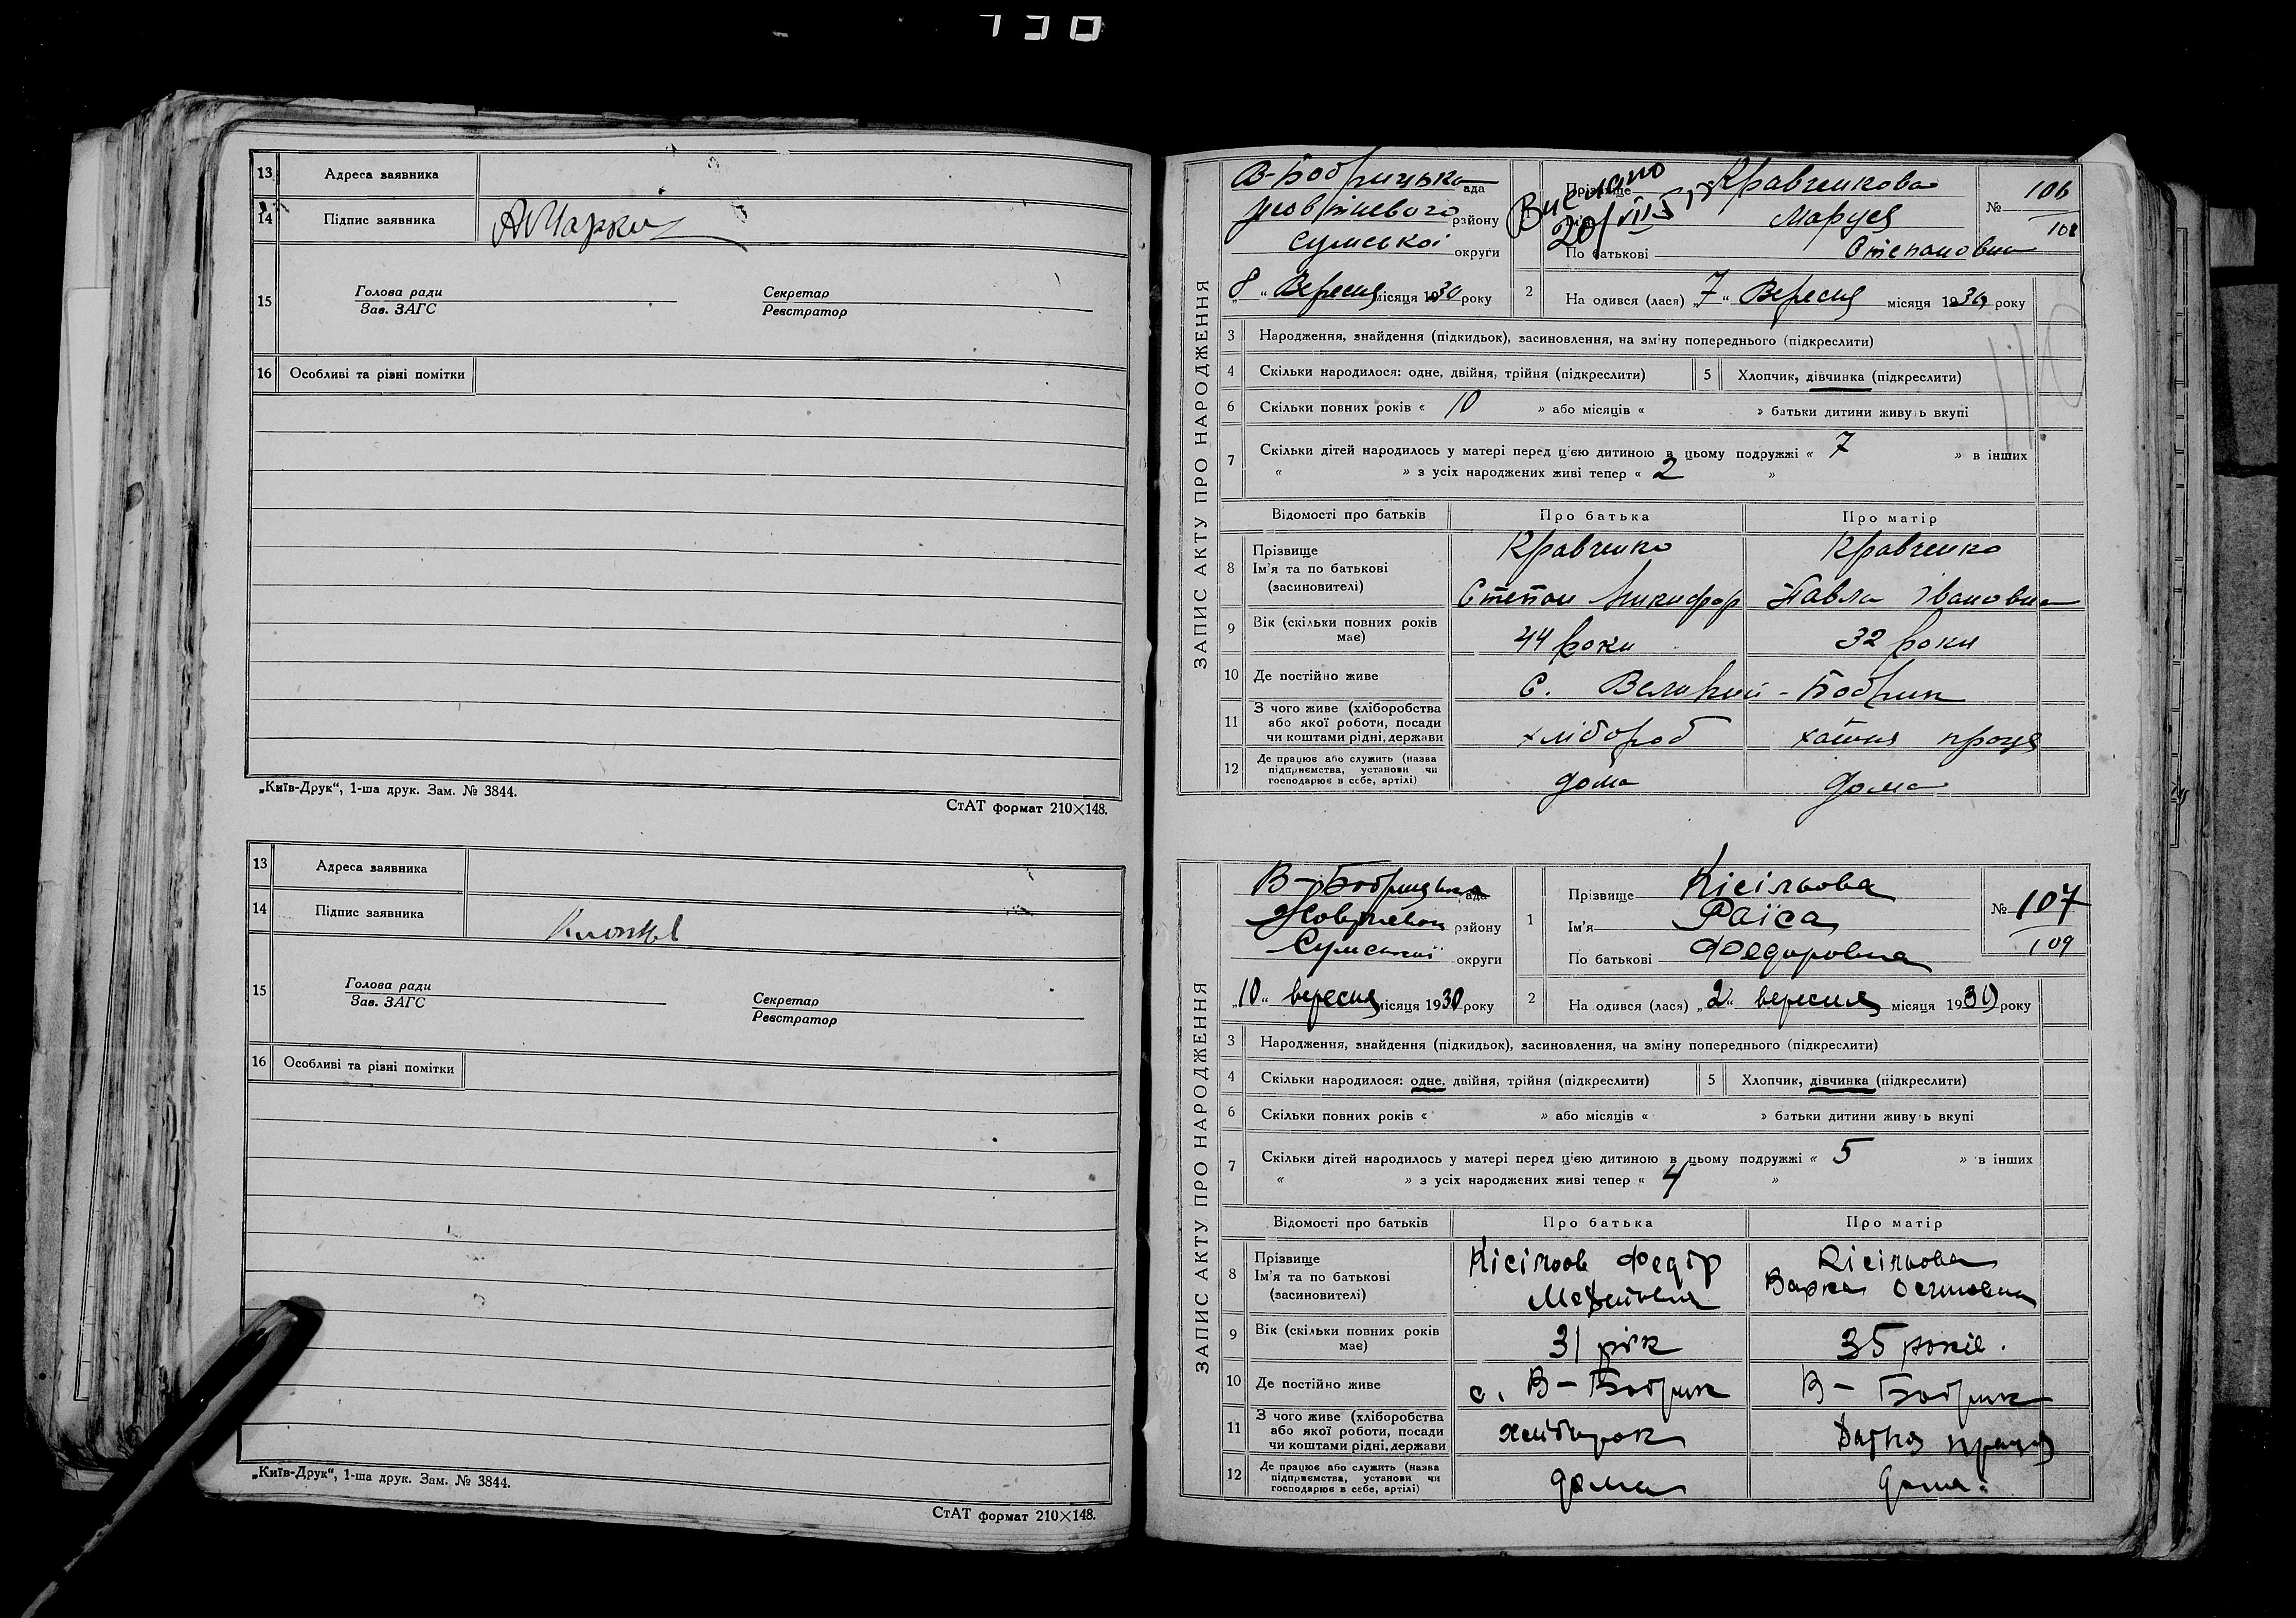 13 Адреса заявника
14 Підпис заявника
15 Голова ради Секретар
Зав. ЗАГС Реєстратор
16 Особливі та різні помітки
„Київ-Друк“, 1-ша друк. Зам. № 3844.
СтАТ формат 210×148.
13 Адреса заявника
14 Підпис заявника
15 Голова ради Секретар
Зав. ЗАГС Реєстратор
16 Особливі та різні помітки
„Київ-Друк“, 1-ша друк. Зам. № 3844.
СтАТ формат 210×148.
ЗАПИС АКТУ ПРО НАРОДЖЕННЯ
В-Бобрицька ада
району
Сумської округи
„8“ Вересня місяця 1930 року
Вислано
1 Прізвище Кравченкова
Маруся
По батькові Степановна
№ 106
108
2 На одився (лася) „7“ Вересня місяця 1930 року
3 Народження, знайдення (підкидьок), засиновлення, на зміну попереднього (підкреслити)
4 Скільки народилося: одне, двійня, трійня (підкреслити) 5 Хлопчик, дівчинка (підкреслити)
6 Скільки повних років « 10 » або місяців « » батьки дитини живуть вкупі
7 Скільки дітей народилось у матері перед цією дитиною в цьому подружжі « 7 » в інших
« » з усіх народжених живі тепер « 2 »
Відомості про батьків Про батька Про матір
8 Прізвище Кравченко Кравченко
Ім'я та по батькові
(засиновителі) Степан Микифор Павла Івановна
9 Вік (скільки повних років має) 44 роки 32 роки
10 Де постійно живе С. Великий - Бобрик
11 З чого живе (хліборобства
або якої роботи, посади
чи коштами рідні, держави хлібороб хатня праця
12 Де працює або служить (назва
підприємства, установи чи
господарює в себе, артілі) дома дома
ЗАПИС АКТУ ПРО НАРОДЖЕННЯ
В-Бобрицька ада
району
Сумської округи
„10“ вересня місяця 1930 року
1 Прізвище Кісільова
Ім'я Раїса
По батькові Федоровна
№ 107
109
2 На одився (лася) „2“ вересня місяця 1930 року
3 Народження, знайдення (підкидьок), засиновлення, на зміну попереднього (підкреслити)
4 Скільки народилося: одне, двійня, трійня (підкреслити) 5 Хлопчик, дівчинка (підкреслити)
6 Скільки повних років « » або місяців « » батьки дитини живуть вкупі
7 Скільки дітей народилось у матері перед цією дитиною в цьому подружжі « 5 » в інших
« » з усіх народжених живі тепер « 4 »
Відомості про батьків Про батька Про матір
8 Прізвище Кісільов Федір Кісільова
Ім'я та по батькові Варка
(засиновителі)
9 Вік (скільки повних років має) 31 рік 35 років.
10 Де постійно живе с. В-Бобрик В-Бобрик
11 З чого живе (хліборобства
або якої роботи, посади
чи коштами рідні, держави праця
12 Де працює або служить (назва
підприємства, установи чи
господарює в себе, артілі) дома дома